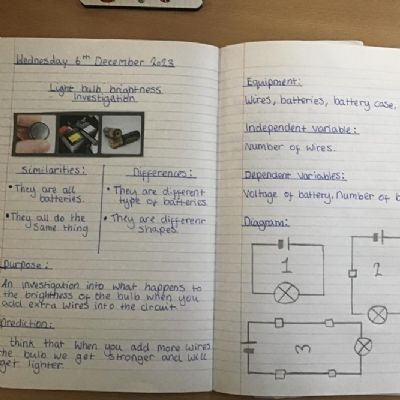 Wednesday 6th December 2023
Light bulb brightness
investigation.
Similarities:
• They are all
batteries.
• They all do the
same thing
Differences:
• They are different
type of batteries.
• They are different
shapes.
Purpose:
An investigation into what happens to
the brightness of the bulb when you
add extra wires into the circuit
Prediction:
I think that when you add more wires
the bulb we get stronger and will
get lighter.
Equipment:
Wires, batteries, battery case,
Independent variable:
Number of wires.
Dependent variables:
Voltage of battery, Number of b
Diagram:
1
2
3